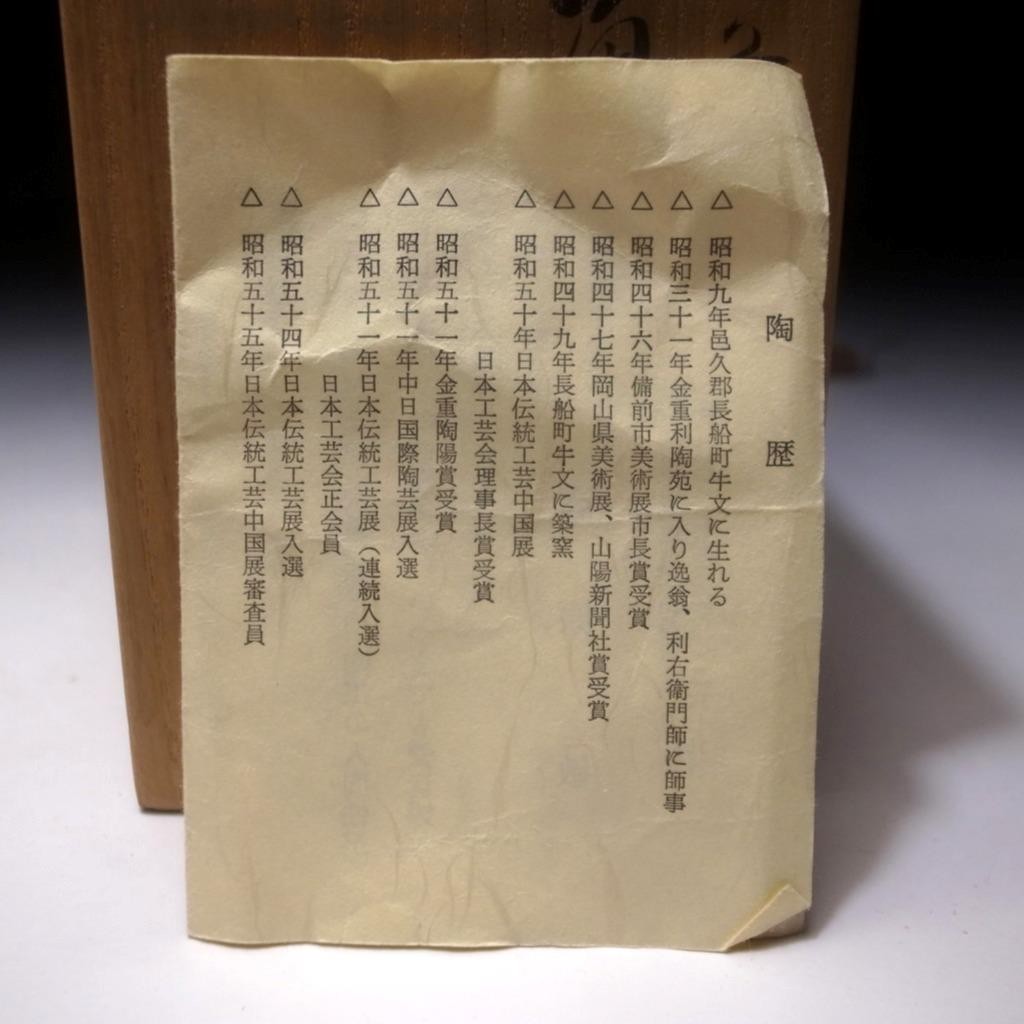 陶歴
△ 昭和九年邑久郡長船町牛文に生れる
△ 昭和三十一年金重利陶苑に入り逸翁、利右衛門師に師事
△ 昭和四十六年備前市美術展市長賞受賞
△ 昭和四十七年岡山県美術展、山陽新聞社賞受賞
△ 昭和四十九年長船町牛文に築窯
△ 昭和五十年日本伝統工芸中国展
日本工芸会理事長賞受賞
△ 昭和五十一年金重陶陽賞受賞
△ 昭和五十一年中日国際陶芸展入選
△ 昭和五十一年日本伝統工芸展（連続入選）
日本工芸会正会員
△ 昭和五十四年日本伝統工芸展入選
△ 昭和五十五年日本伝統工芸中国展審査員